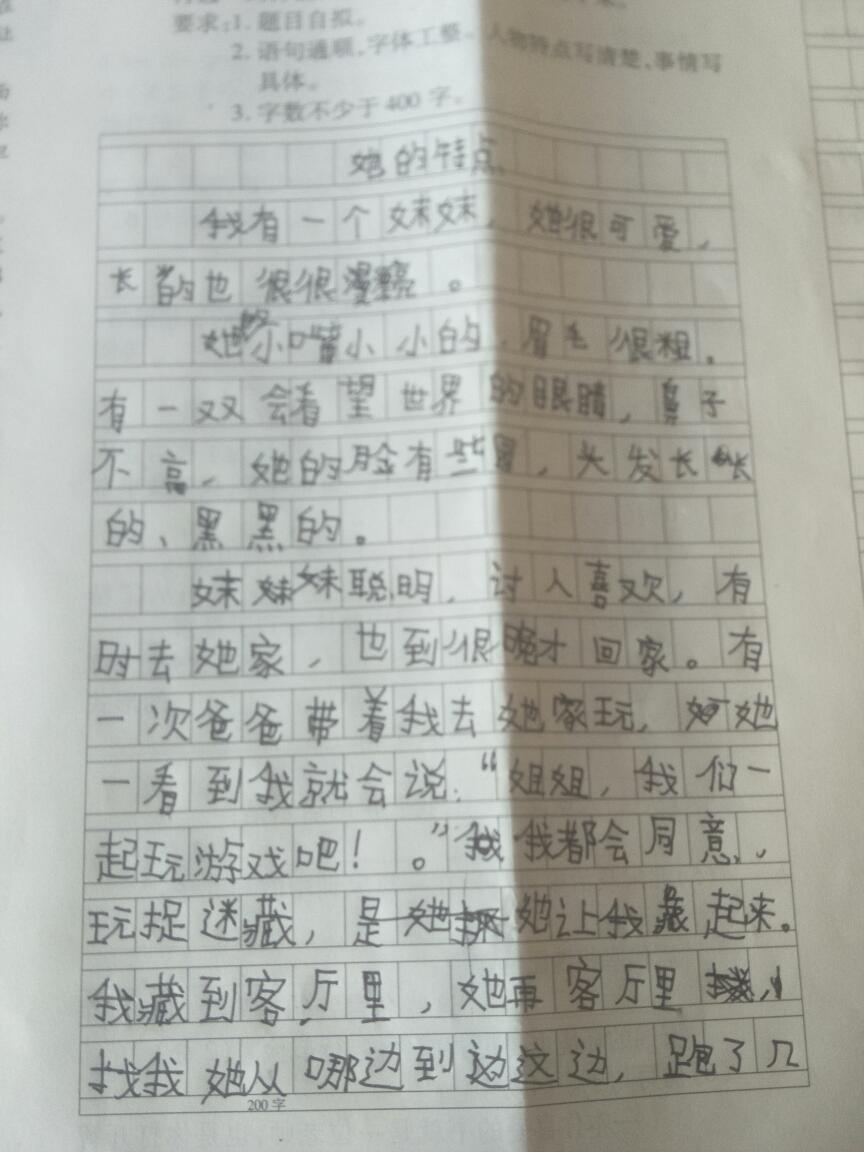 要求:1.题目自拟。
2.语句通顺,字体工整。人物特点写清楚、事情写
具体。
3.字数不少于400字。
她的特点
我有一个妹妹，她很可爱，
长的也很很漂亮。
她的小嘴小小的，眉毛很粗。
有一双会看望世界的眼睛，鼻子
不高，她的脸有些黑，头发长长
的、黑黑的。
妹妹妹聪明，讨人喜欢，有
时去她家，也到很晚才回家。有
一次爸爸带着我去她家玩，她
一看到我就会说：“姐姐，我们一
起玩游戏吧！。”我都会同意，
玩捉迷藏，是她她让我藏起来。
我藏到客厅里，她再客厅里
找我她从哪边到边这边，跑了几
200字